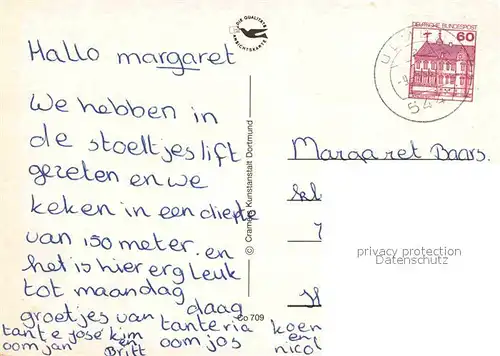 DIE QUALITÄTS
ANSICHTSKARTE
DEUTSCHE BUNDESPOST
60
Hallo margaret
We hebben in
de stoeltjeslift
gezeten en we
keken in een diepte
van 150 meter. en
het is hier erg Leuk
tot maandag
daag
groetjes van
tante josé kim tanteria koen
en en
oom jan Britt oom jos nicol
© Cramers Kunstanstalt Dortmund
Co 709
Margaret Baars.
privacy protection
Datenschutz